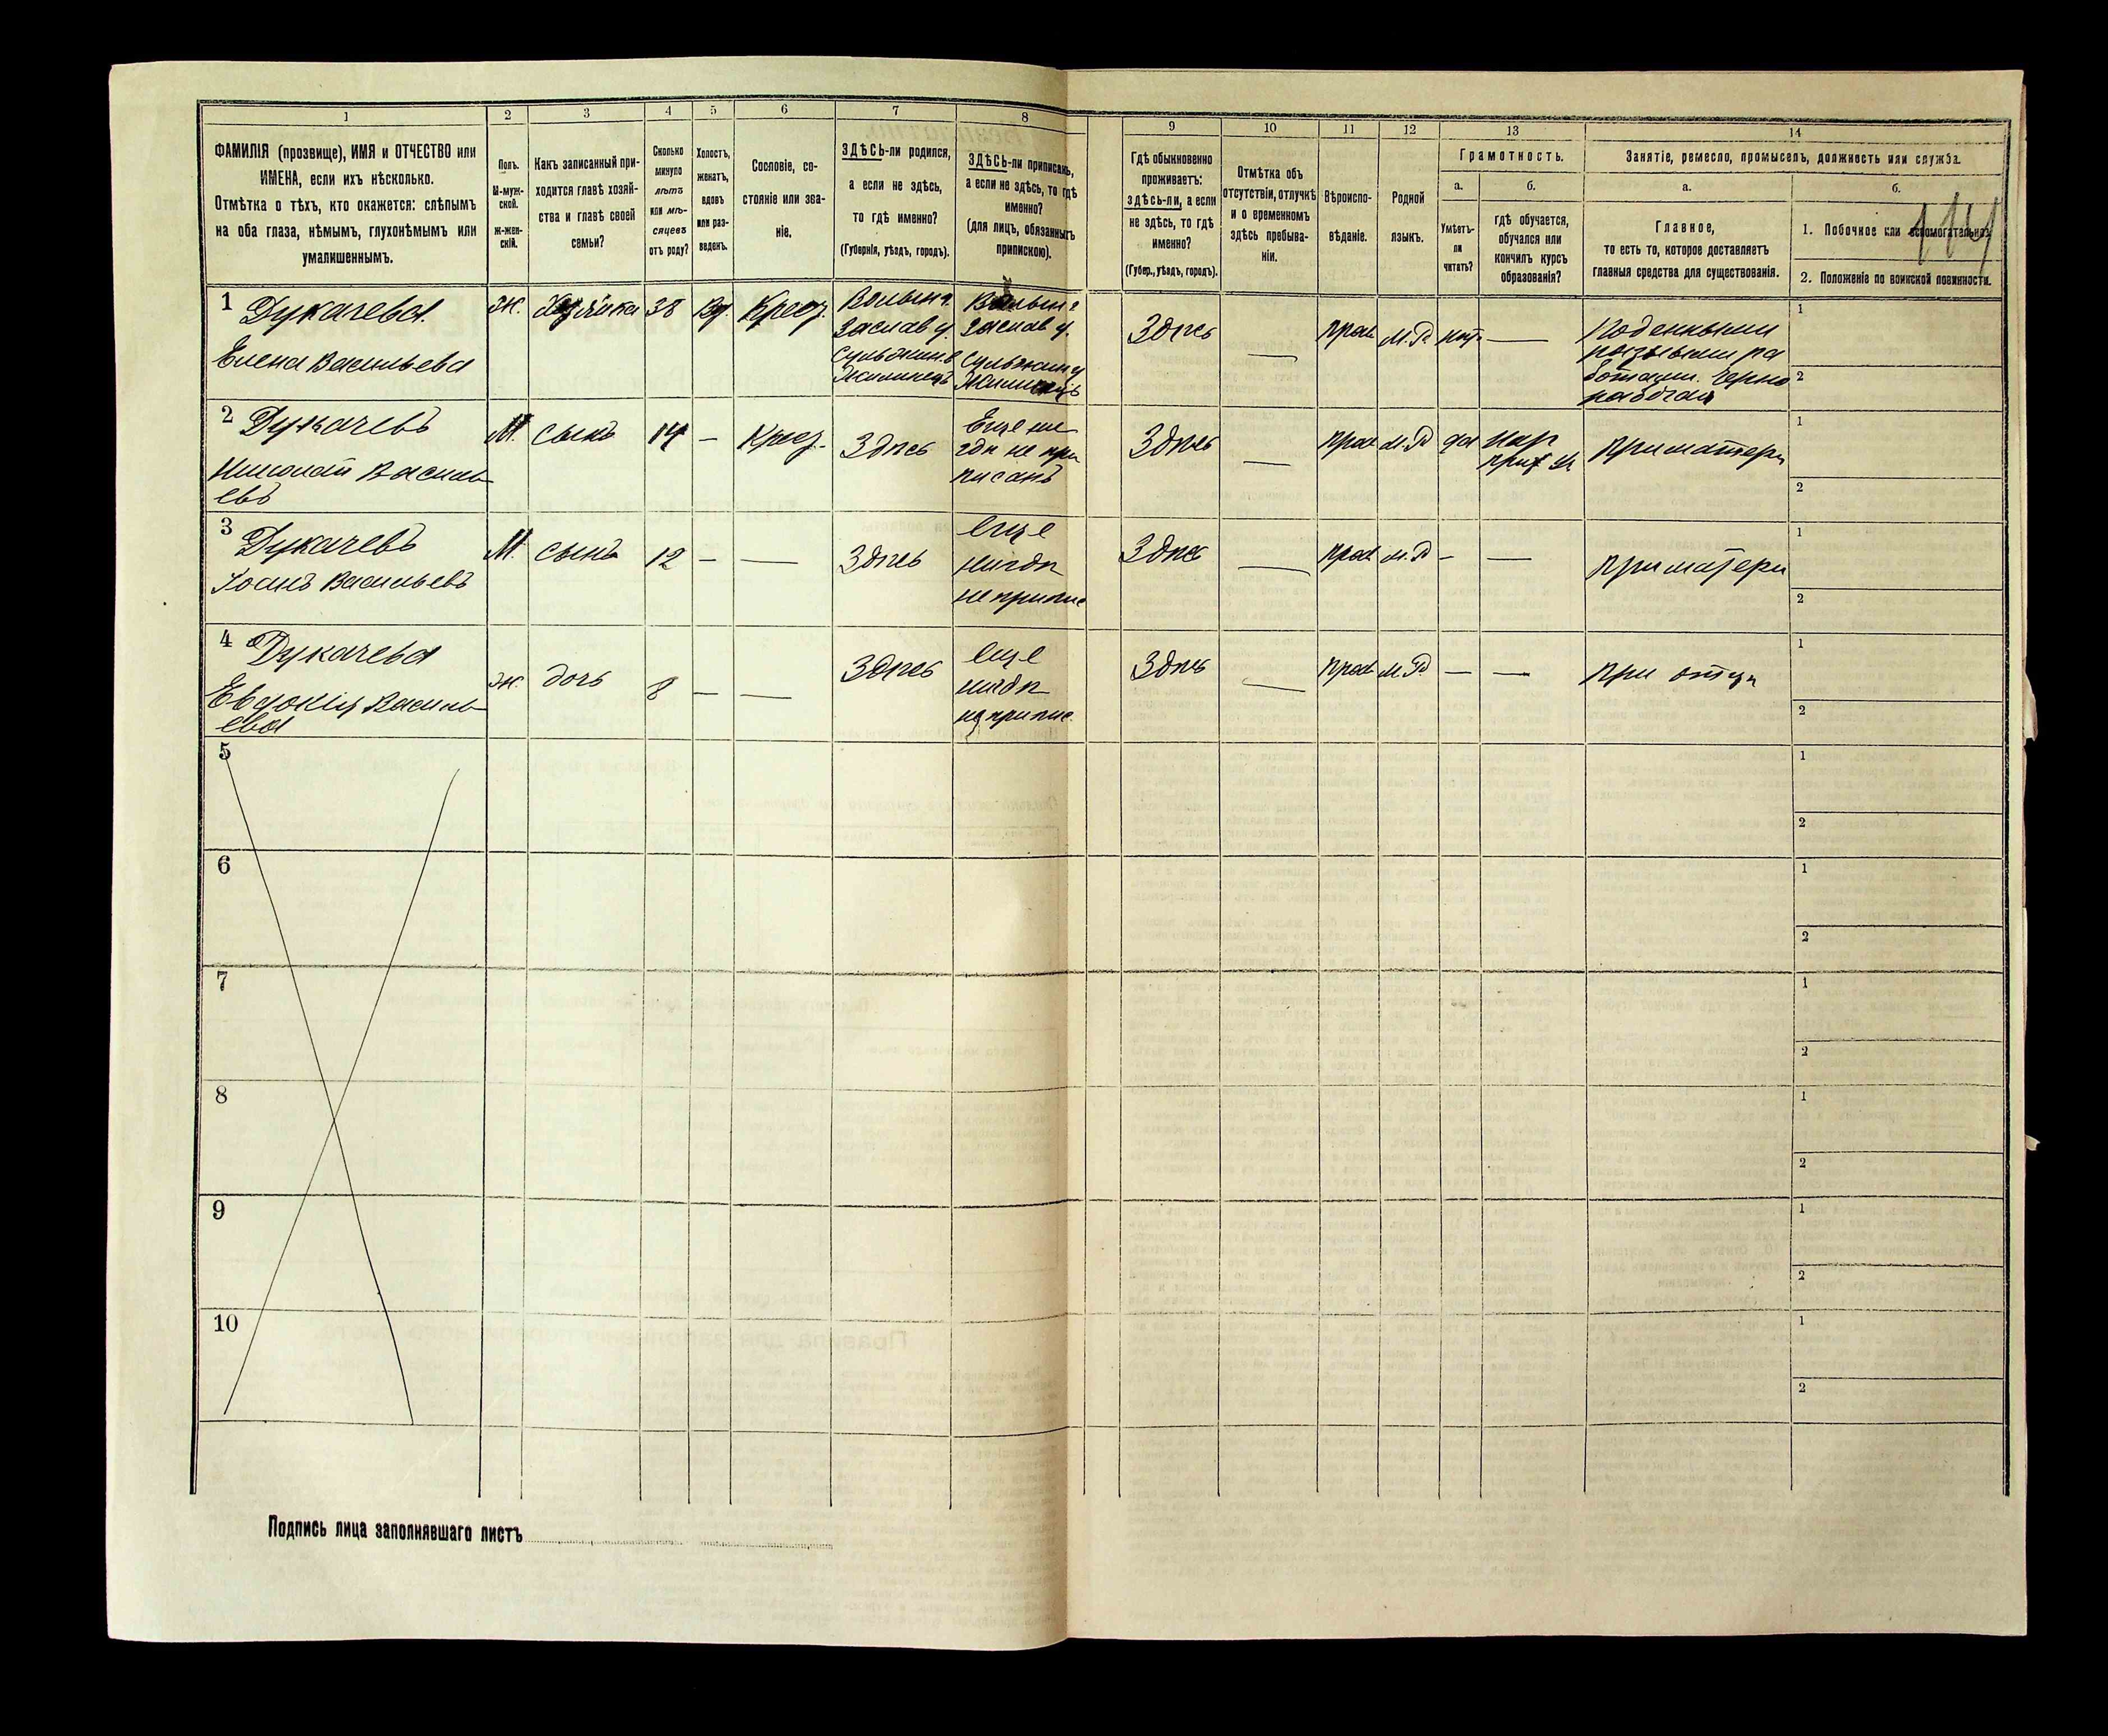 1 2 3 4 5 6 7 8 9 10 11 12 13 14
ФАМИЛІЯ (прозвище), ИМЯ и ОТЧЕСТВО или
ИМЕНА, если ихъ нѣсколько.
Отмѣтка о тѣхъ, кто окажется: слѣпымъ
на оба глаза, нѣмымъ, глухонѣмымъ или
умалишеннымъ.
Полъ.
М-муж-
ской.
Ж-жен-
скій.
Какъ записанный при-
ходится главѣ хозяй-
ства и главѣ своей
семьи?
Сколько
минуло
лѣтъ
или мѣ-
сяцевъ
отъ роду?
Холостъ,
женатъ,
вдовъ
или раз-
веденъ.
Сословіе, со-
стояніе или зва-
ніе.
ЗДѢСЬ-ли родился,
а если не здѣсь,
то гдѣ именно?
(Губернія, уѣздъ, городъ).
ЗДѢСЬ-ли приписанъ,
а если не здѣсь, то гдѣ
именно?
(для лицъ, обязанныхъ
припискою).
Гдѣ обыкновенно
проживаетъ:
здѣсь-ли, а если
не здѣсь, то гдѣ
именно?
(Губер., уѣздъ, городъ).
Отмѣтка объ
отсутствіи, отлучкѣ
и о временномъ
здѣсь пребыва-
ніи.
Вѣроиспо-
вѣданіе.
Родной
языкъ.
Грамотность.
а.
Умѣетъ-
ли
читать?
б.
гдѣ обучается,
обучался или
кончилъ курсъ
образованія?
Занятіе, ремесло, промыселъ, должность или служба.
а.
Главное,
то есть то, которое доставляетъ
главныя средства для существованія.
б.
1. Побочное или вспомогательное.
2. Положеніе по воинской повинности.
1 Дукачева.
Елена Васильева
Ж.
Хозяйка
38
Вд.
Крест.
Волын г.
Заслав у.
Волын г
Заслав у.
Здѣсь
прав
М.Р.
нѣт
—
Поденными
1
2
2 Дукачевъ
Николай Василь-
евъ
М.
сынъ
14
—
Крест.
Здѣсь
Еще ни-
гдѣ не при
писанъ
Здѣсь
прав
М.Р
да
нар
прих уч
При матери
1
2
3 Дукачевъ
Іоанъ Васильевъ
М.
сынъ
12
—
—
Здѣсь
еще
нигдѣ
не припис
Здѣсь
прав
М.Р
—
—
При матери
1
2
4 Дукачева
Евдокія Василь-
ева
Ж.
дочь
8
—
—
Здѣсь
еще
нигдѣ
не припис
Здѣсь
прав
М.Р.
—
—
При отцѣ
1
2
5
1
2
6
1
2
7
1
2
8
1
2
9
1
2
10
1
2
Подпись лица заполнявшаго листъ